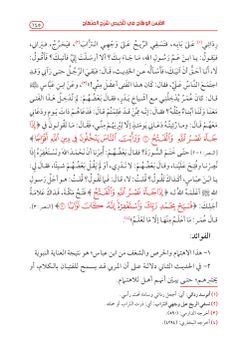 القبس الوهاج في تلخيص شرح المنهاج
١٤٥
رِدَائِي(١) عَلَى بَابِهِ، فَتَسْفِي الرِّيحُ عَلَى وَجْهِي التُّرَابَ(٢)، فَيَخْرُجُ، فَيَرَانِي،
فَيَقُولُ: يَا ابنَ عَمِّ رَسُولِ اللهِ، مَا جَاءَ بِكَ؟ أَلَا أَرْسَلْتَ إِلَيَّ فَآتِيكَ؟ فَأَقُولُ:
لَا، أَنَا أَحَقُّ أَنْ آتِيَكَ فَأَسْأَلُهُ عَنِ الحَدِيثِ، قَالَ: فَبَقِيَ الرَّجُلُ حَتَّى رَآنِي وَقَدِ
اجْتَمَعَ النَّاسُ عَلَيَّ، فَقَالَ: كَانَ هَذَا الفَتَى أَعْقَلَ مِنِّي(٣).
قَالَ: كَانَ عُمَرُ يُدْخِلُنِي مَعَ أَشْيَاخِ بَدْرٍ، فَقَالَ بَعْضُهُمْ: لِمَ تُدْخِلُ هَذَا الفَتَى
مَعَنَا وَلَنَا أَبْنَاءٌ مِثْلُهُ؟ فَقَالَ: إِنَّهُ مِمَّنْ قَدْ عَلِمْتُمْ، قَالَ: فَدَعَاهُمْ ذَاتَ يَوْمٍ وَدَعَانِي
مَعَهُمْ قَالَ: وَمَا رُئِيتُهُ دَعَانِي يَوْمَئِذٍ إِلَّا لِيُرِيَهُمْ مِنِّي، فَقَالَ: مَا تَقُولُونَ فِي ﴿إِذَا
جَاءَ نَصْرُ اللَّهِ وَالْفَتْحُ ۝ وَرَأَيْتَ النَّاسَ يَدْخُلُونَ فِي دِينِ اللَّهِ أَفْوَاجًا﴾
حَتَّى خَتَمَ السُّورَةَ؟ فَقَالَ بَعْضُهُمْ: أُمِرْنَا أَنْ نَحْمَدَ اللهَ وَنَسْتَغْفِرَهُ إِذَا
نُصِرْنَا وَفُتِحَ عَلَيْنَا، وَقَالَ بَعْضُهُمْ: لَا نَدْرِي، أَوْ لَمْ يَقُلْ بَعْضُهُمْ شَيْئًا، فَقَالَ لِي:
يَا ابنَ عَبَّاسٍ، أَكَذَاكَ تَقُولُ؟ قُلْتُ: لَا، قَالَ: فَمَا تَقُولُ؟ قُلْتُ: هُوَ أَجَلُ رَسُولِ
اللهِ ﷺ أَعْلَمَهُ اللهُ لَهُ ﴿إِذَا جَاءَ نَصْرُ اللَّهِ وَالْفَتْحُ﴾ فَتْحُ مَكَّةَ، فَذَاكَ عَلَامَةُ
أَجَلِكَ: ﴿فَسَبِّحْ بِحَمْدِ رَبِّكَ وَاسْتَغْفِرْهُ إِنَّهُ كَانَ تَوَّابًا﴾ (النصر: ٣).
قَالَ عُمَرُ: مَا أَعْلَمُ مِنْهَا إِلَّا مَا تَعْلَمُ(٤).
الفوائد:
١- هذا الاهتمام والحرص والشغف من ابن عباس؛ هو نتيجة العناية النبوية
٢- في الحديث الثاني دلالة على أن المربي قد يسمح للفتيان بالكلام، أو
يحترمهم حتى يبين أنهم أهل للاهتمام.
(١) أتوسد ردائي: أي: أجعل ردائي وسادة تحت رأسي.
(٢) تسفي الريح على وجهي التراب: أي: ذرت التراب أو حملته
(٣) أخرجه الدارمي: (٥٩٠).
(٤) أخرجه البخاري: (٤٢٩٤).